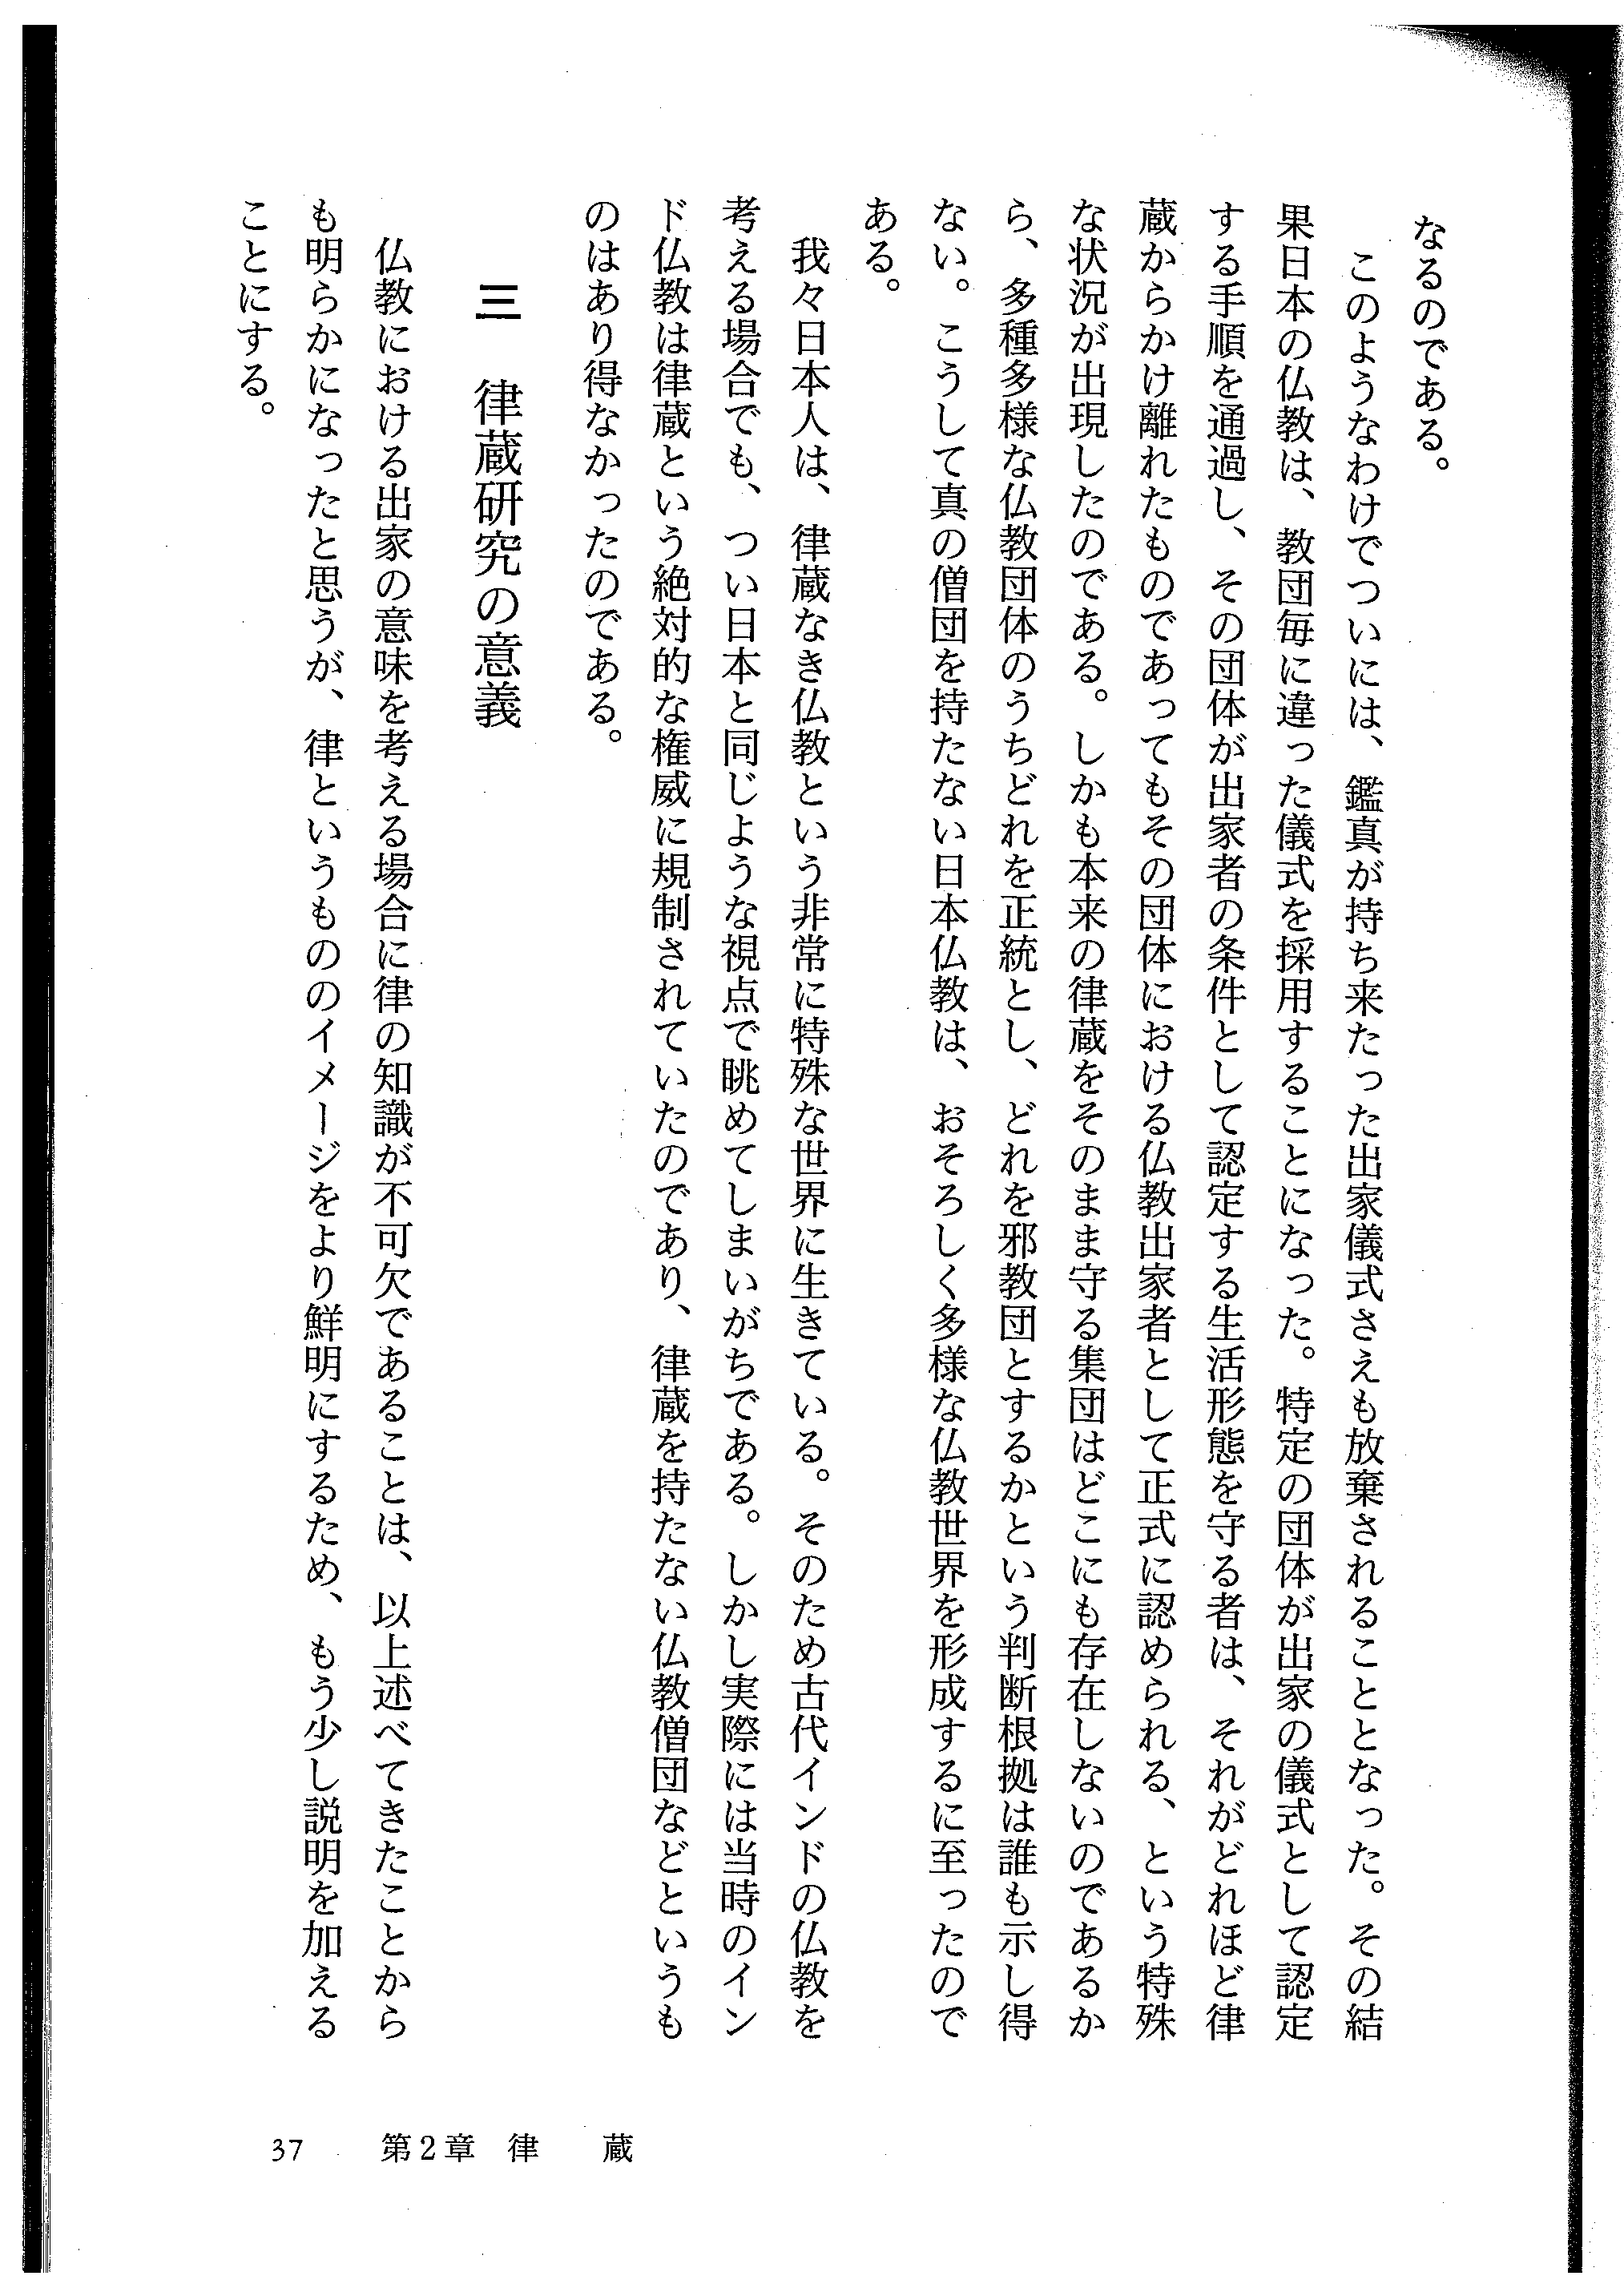 なるのである。
　このようなわけでついには、鑑真が持ち来たった出家儀式さえも放棄されることとなった。その結
果日本の仏教は、教団毎に違った儀式を採用することになった。特定の団体が出家の儀式として認定
する手順を通過し、その団体が出家者の条件として認定する生活形態を守る者は、それがどれほど律
蔵からかけ離れたものであってもその団体における仏教出家者として正式に認められる、という特殊
な状況が出現したのである。しかも本来の律蔵をそのまま守る集団はどこにも存在しないのであるか
ら、多種多様な仏教団体のうちどれを正統とし、どれを邪教団とするかという判断根拠は誰も示し得
ない。こうして真の僧団を持たない日本仏教は、おそろしく多様な仏教世界を形成するに至ったので
ある。
　我々日本人は、律蔵なき仏教という非常に特殊な世界に生きている。そのため古代インドの仏教を
考える場合でも、つい日本と同じような視点で眺めてしまいがちである。しかし実際には当時のイン
ド仏教は律蔵という絶対的な権威に規制されていたのであり、律蔵を持たない仏教僧団などというも
のはあり得なかったのである。
三　律蔵研究の意義
　仏教における出家の意味を考える場合に律の知識が不可欠であることは、以上述べてきたことから
も明らかになったと思うが、律というもののイメージをより鮮明にするため、もう少し説明を加える
ことにする。
37　第2章　律　蔵